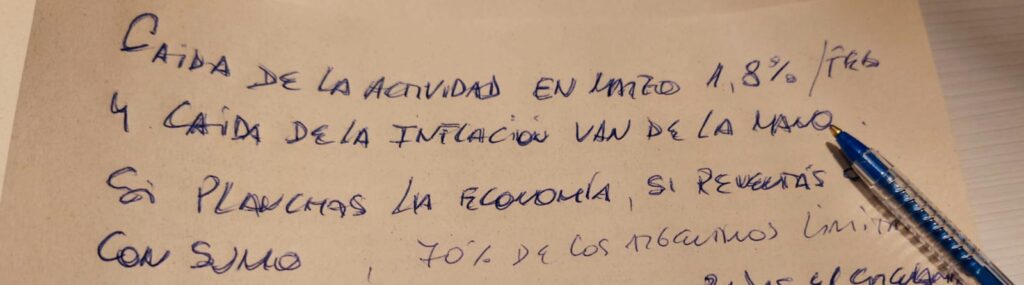 CAIDA DE LA ACTIVIDAD EN MARZO 1,8% / FEB
Y CAIDA DE LA INFLACIÓN VAN DE LA MANO.
SI PLANCHAS LA ECONOMÍA, SI REVENTÁS
CONSUMO, 70% DE LOS ARGENTINOS